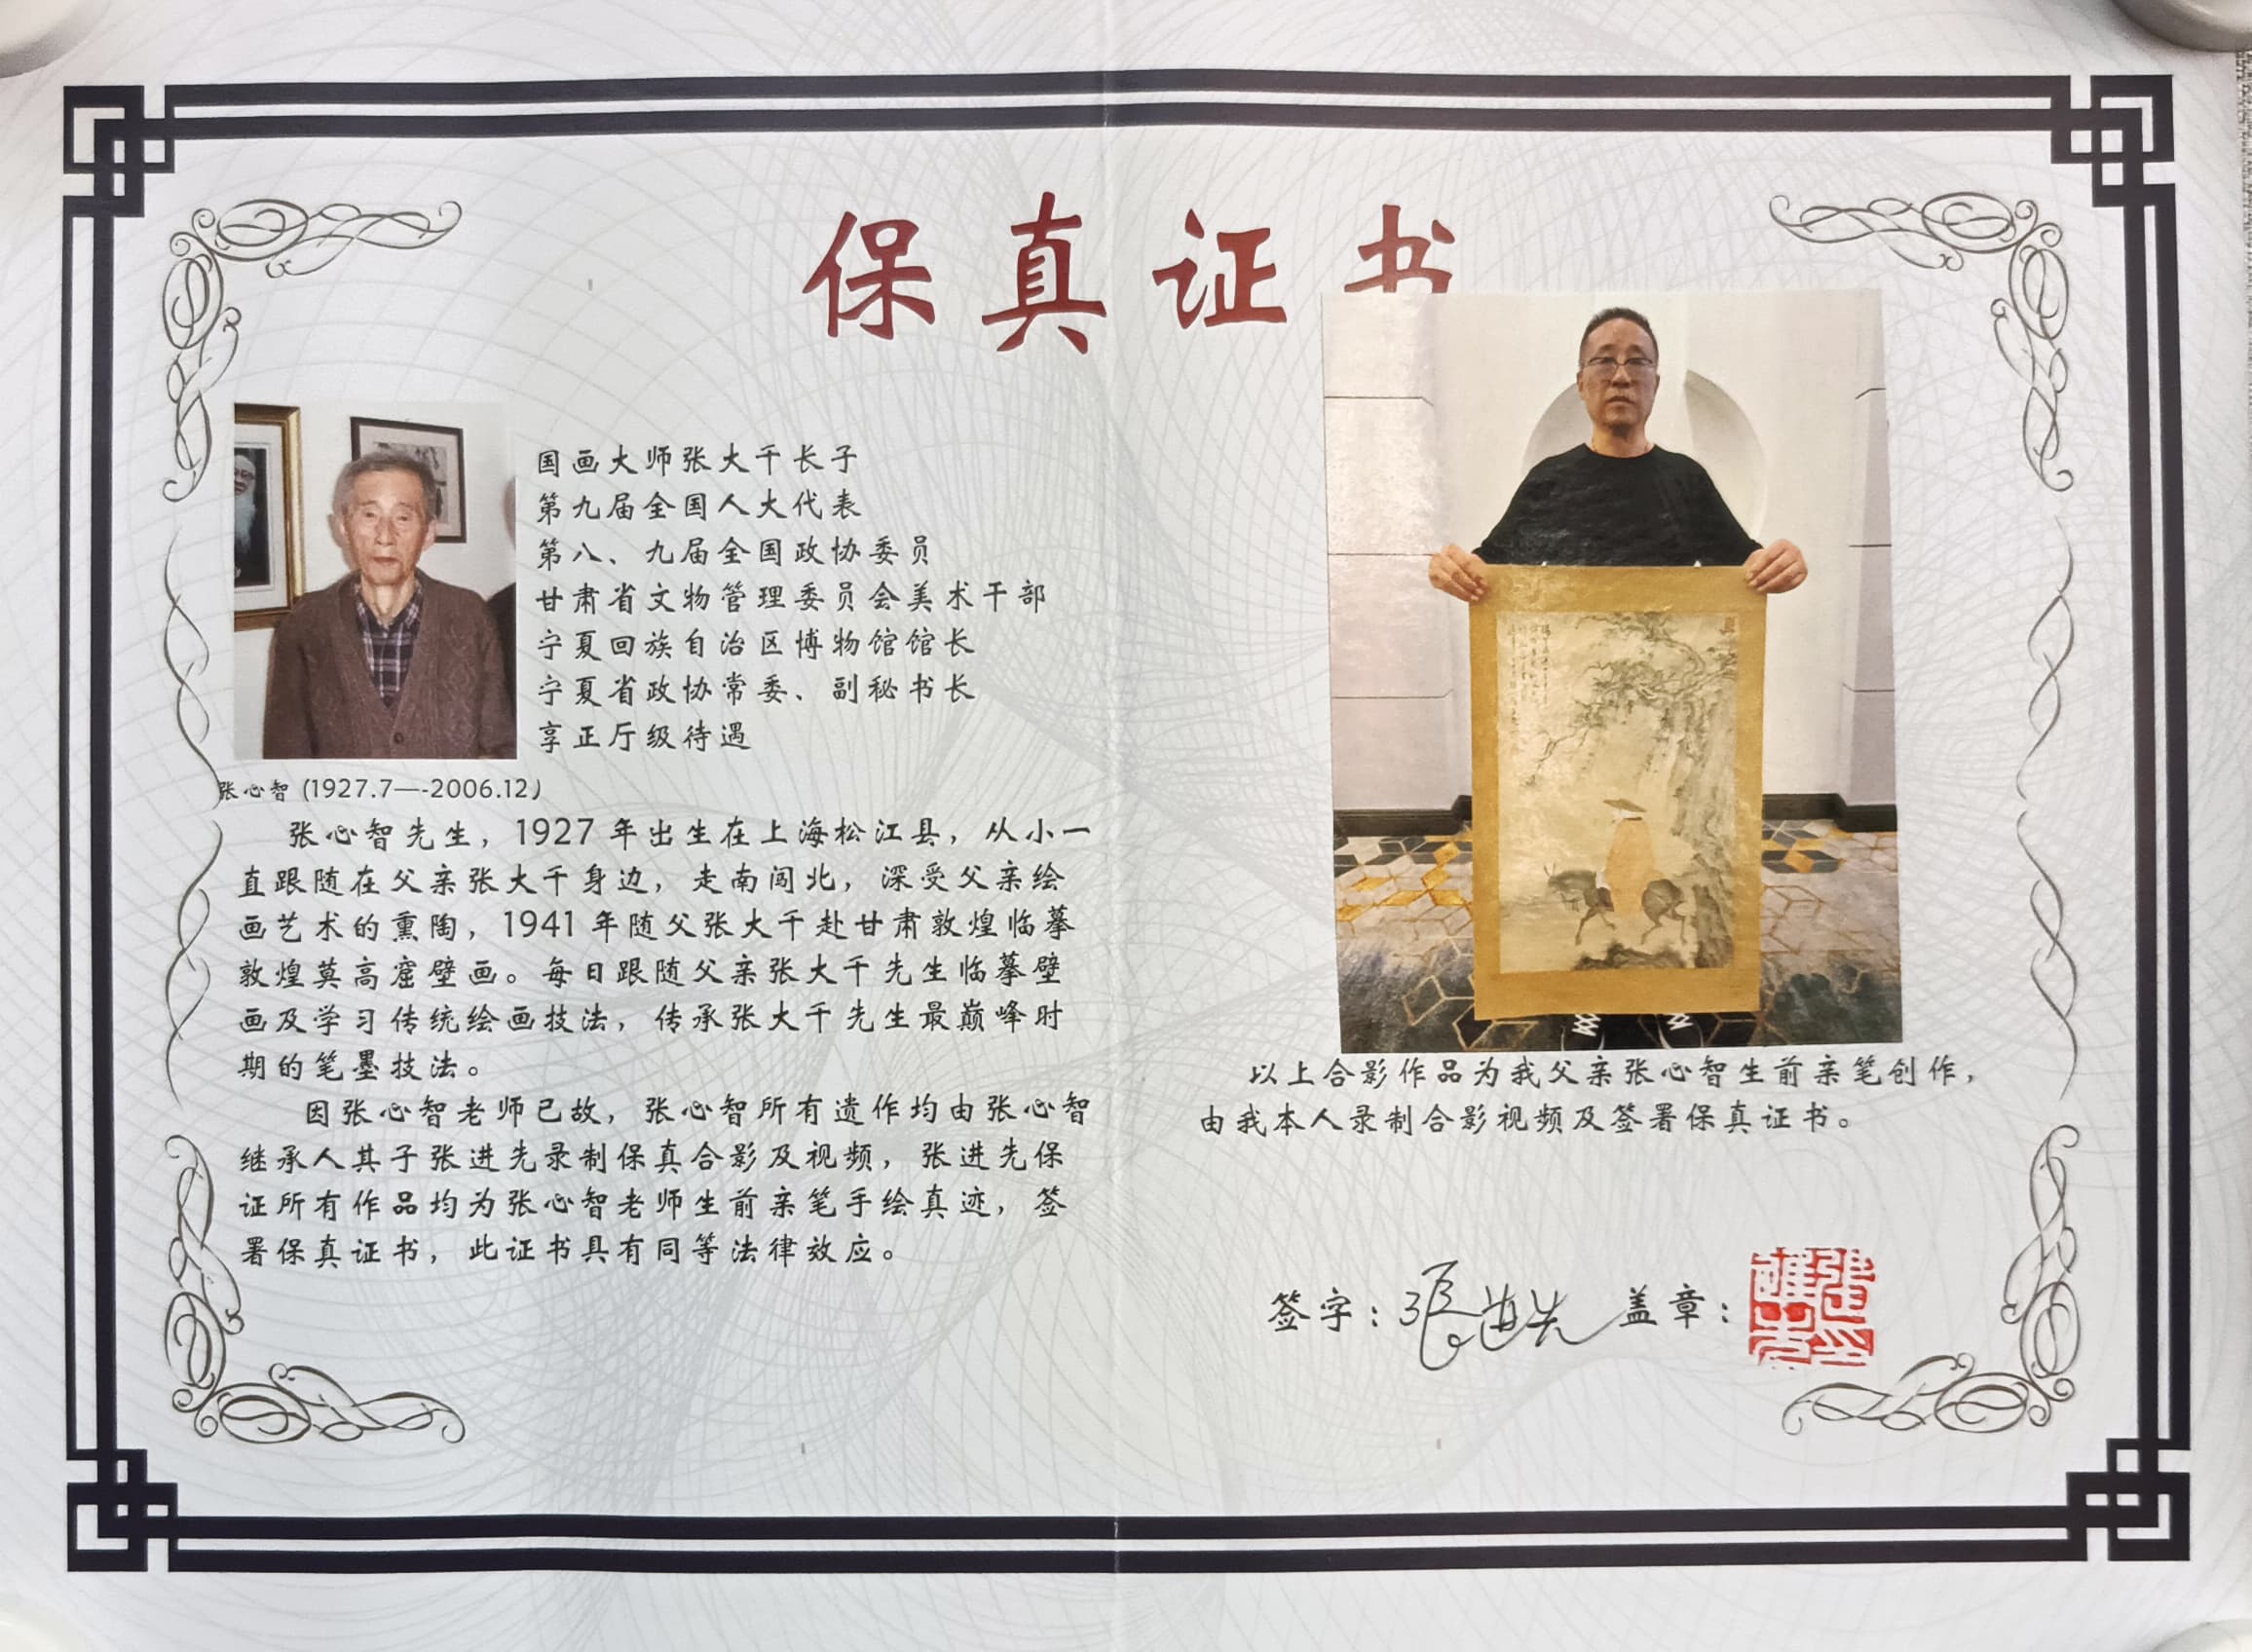 保真证书
国画大师张大千长子
第九届全国人大代表
第八、九届全国政协委员
甘肃省文物管理委员会美术干部
宁夏回族自治区博物馆馆长
宁夏省政协常委、副秘书长
享正厅级待遇
张心智 (1927.7—-2006.12)
张心智先生，1927 年出生在上海松江县，从小一
直跟随在父亲张大千身边，走南闯北，深受父亲绘
画艺术的熏陶，1941 年随父张大千赴甘肃敦煌临摹
敦煌莫高窟壁画。每日跟随父亲张大千先生临摹壁
画及学习传统绘画技法，传承张大千先生最巅峰时
期的笔墨技法。
因张心智老师已故，张心智所有遗作均由张心智
继承人其子张进先录制保真合影及视频，张进先保
证所有作品均为张心智老师生前亲笔手绘真迹，签
署保真证书，此证书具有同等法律效应。
以上合影作品为我父亲张心智生前亲笔创作，
由我本人录制合影视频及签署保真证书。
签字：張进先 盖章：